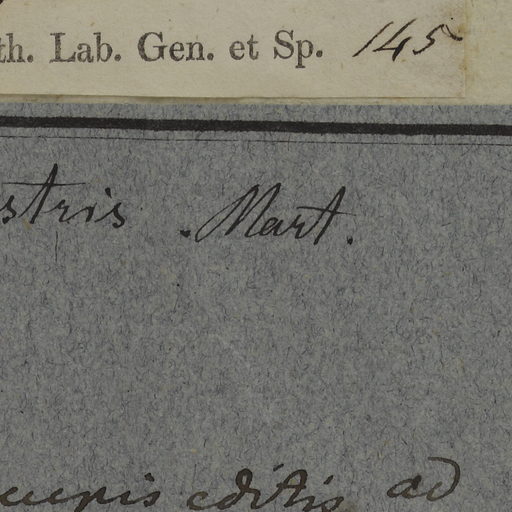 th. Lab. Gen. et Sp. 145
stris . Mart.
editis ad